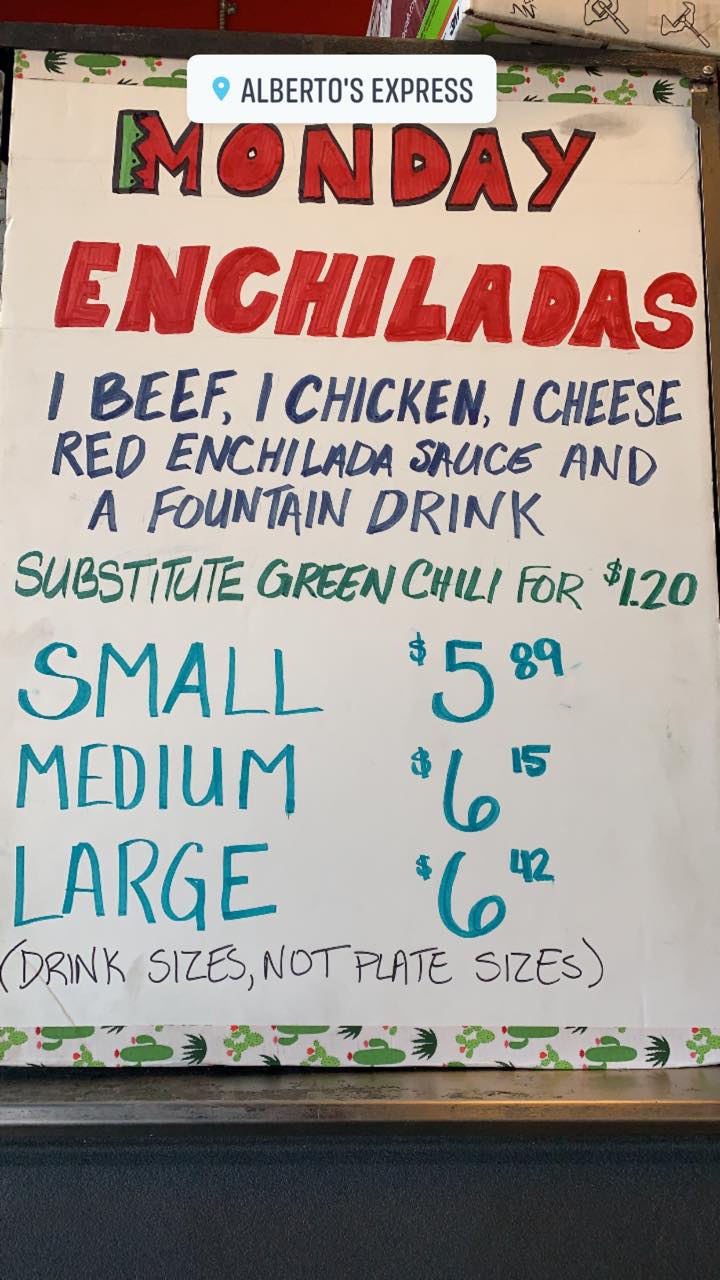 ALBERTO'S EXPRESS
MONDAY
ENCHILADAS
1 BEEF, 1 CHICKEN, 1 CHEESE
RED ENCHILADA SAUCE AND
A FOUNTAIN DRINK
SUBSTITUTE GREEN CHILI FOR $1.20
SMALL $5 89
MEDIUM $6 15
LARGE $6 42
(DRINK SIZES, NOT PLATE SIZES)